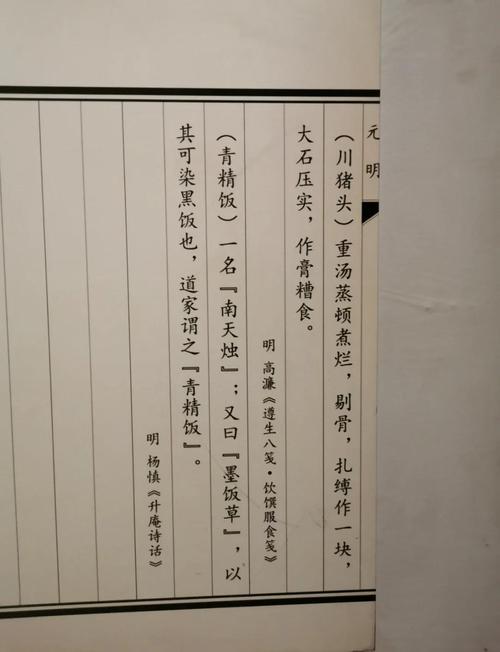 元 明
（川猪头）重汤蒸顿煮烂，剔骨，扎缚作一块，
大石压实，作膏糟食。
明 高濂《遵生八笺·饮馔服食笺》
（青精饭）一名『南天烛』；又曰『墨饭草』，以
其可染黑饭也，道家谓之『青精饭』。
明 杨慎《升庵诗话》